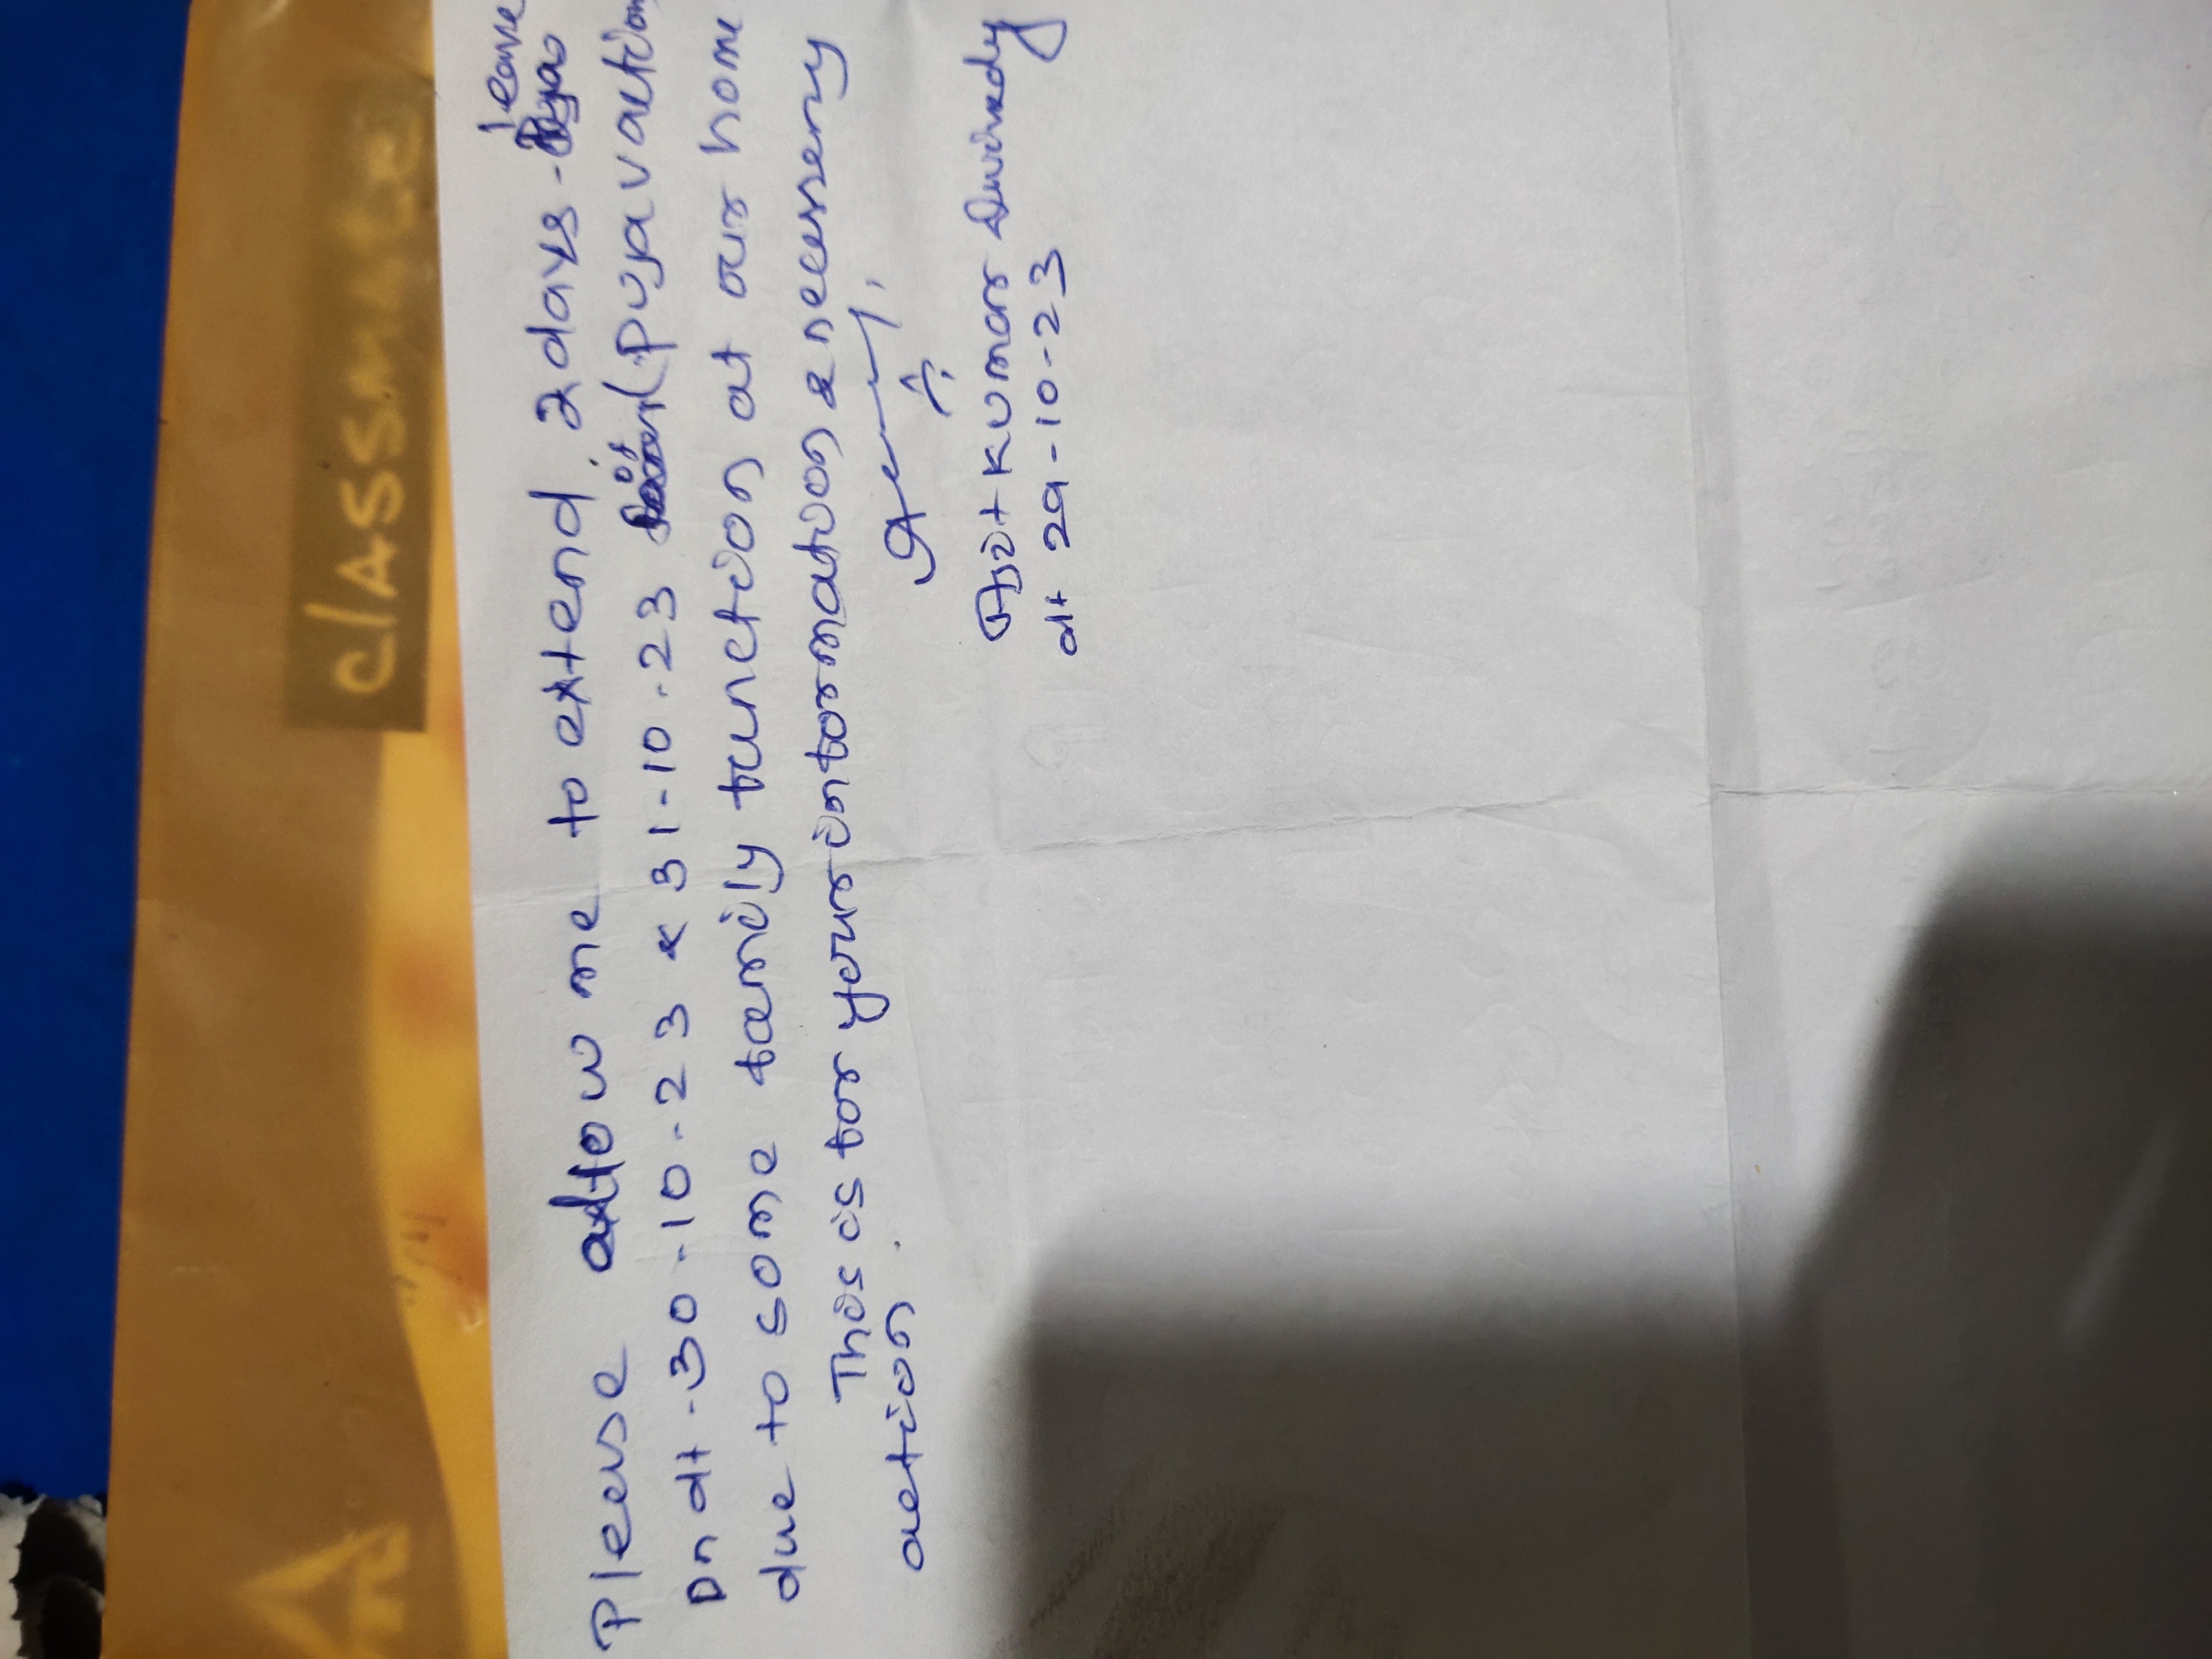 classmate
leave
Please allow me to extend 2 days -
on dt - 30 - 10 - 23 & 31 - 10 - 23 of (puja vaction
due to some family function at our home
This is for your information & necessery
action.
Asit Kumar Dwivedy
dt 29 - 10 - 23